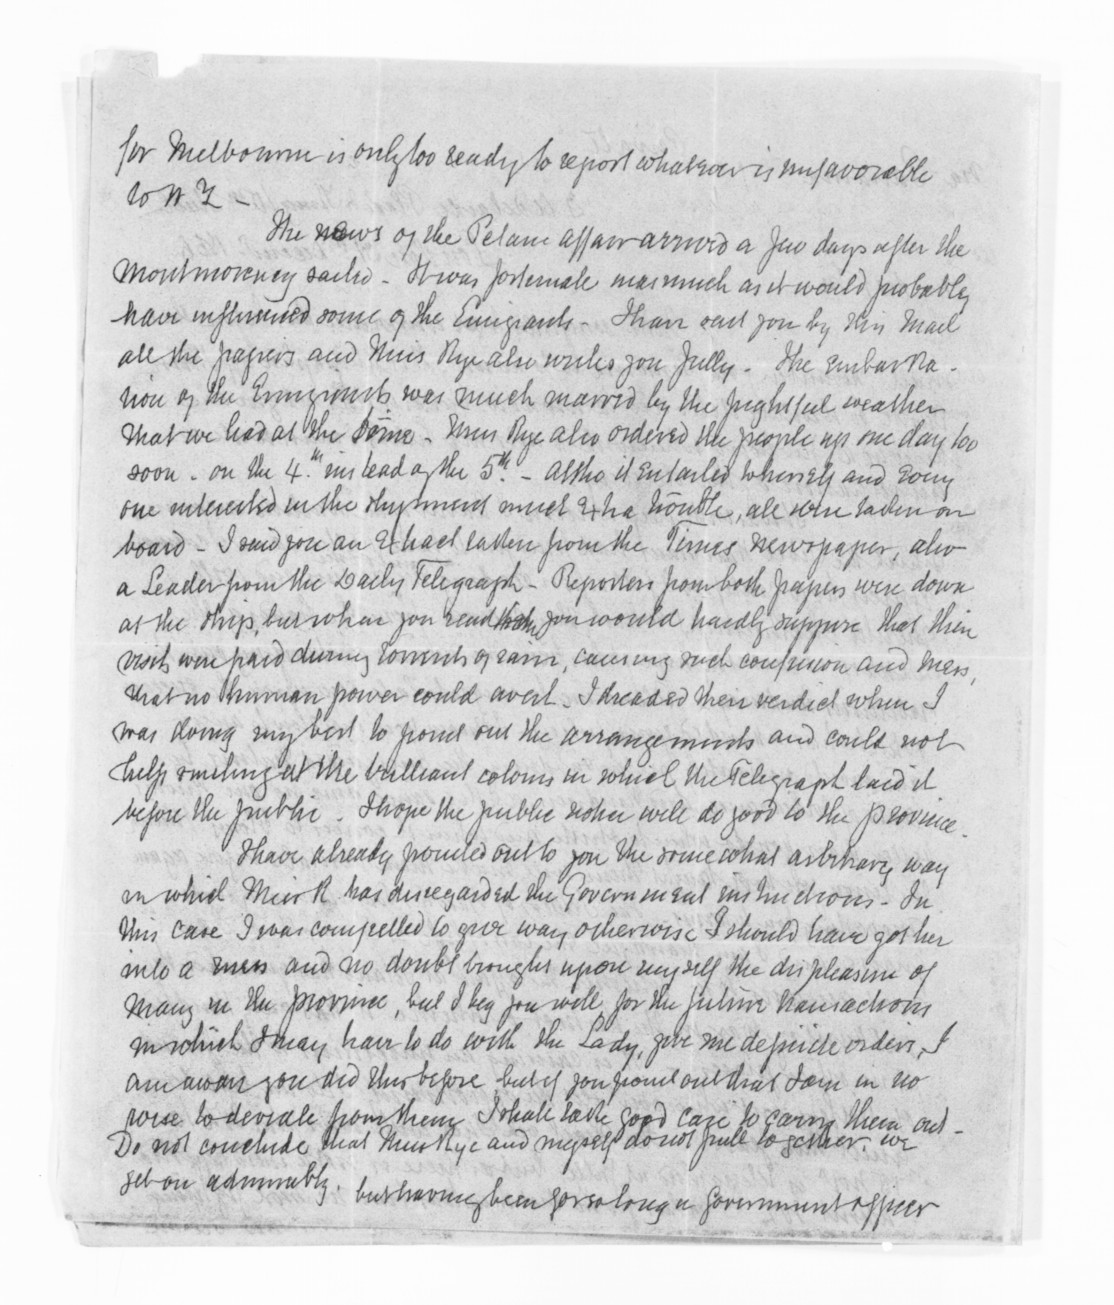 for Melbourne is only too ready to report whatever is unfavorable
to N Z -
The news of the Petane affair arrived a few days after the
Montmorency sailed - It was fortunate inasmuch as it would probably
have influenced some of the Emigrants - I have sent you by this Mail
all the papers and Miss Rye also writes you fully - The embarka-
tion of the Emigrants was much marred by the frightful weather
that we had at the time - Miss Rye also ordered the people up one day too
soon - on the 4th instead of the 5th - altho it entailed herself and every
one interested in the shipment much extra trouble, all were taken on
board - I send you an Extract taken from the Times newspaper, also
a Leader from the Daily Telegraph - Reporters from both papers were down
at the ship, but when you read them you would hardly suppose that their
visits were paid during torrents of rain, causing such confusion and mess,
that no human power could avert - I dreaded their verdict when I
was doing my best to point out the arrangements and could not
help smiling at the brilliant colours in which the Telegraph laid it
before the public - I hope the public notice will do good to the Province -
I have already pointed out to you the somewhat arbitrary way
in which Miss R has disregarded the Government instructions - In
this case I was compelled to give way otherwise I should have got her
into a mess and no doubt brought upon myself the displeasure of
many in the province, but I beg you will, for the future transactions
in which I may have to do with the Lady, give me definite orders, I
am aware you did this before but if you point out that I am in no
wise to deviate from them I shall take good care to carry them out -
Do not conclude that Miss Rye and myself do not pull together, we
get on admirably, but having been for so long a Government officer